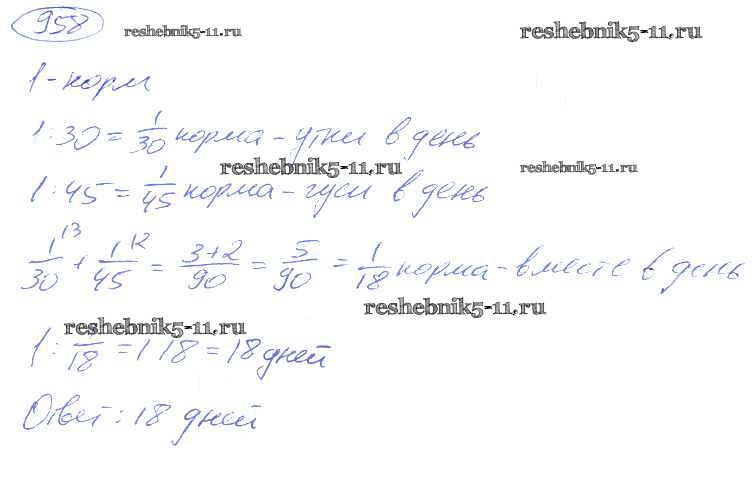 958 reshebnik5-11.ru reshebnik5-11.ru
1 - корм
1:30 = 1/30 корма - утки в день
reshebnik5-11.ru reshebnik5-11.ru
1:45 = 1/45 корма - гуси в день
1/30 \3 + 1/45 \2 = 3+2/90 = 5/90 = 1/18 корма - вместе в день
reshebnik5-11.ru reshebnik5-11.ru
1 : 1/18 = 1 18 = 18 дней
Ответ: 18 дней